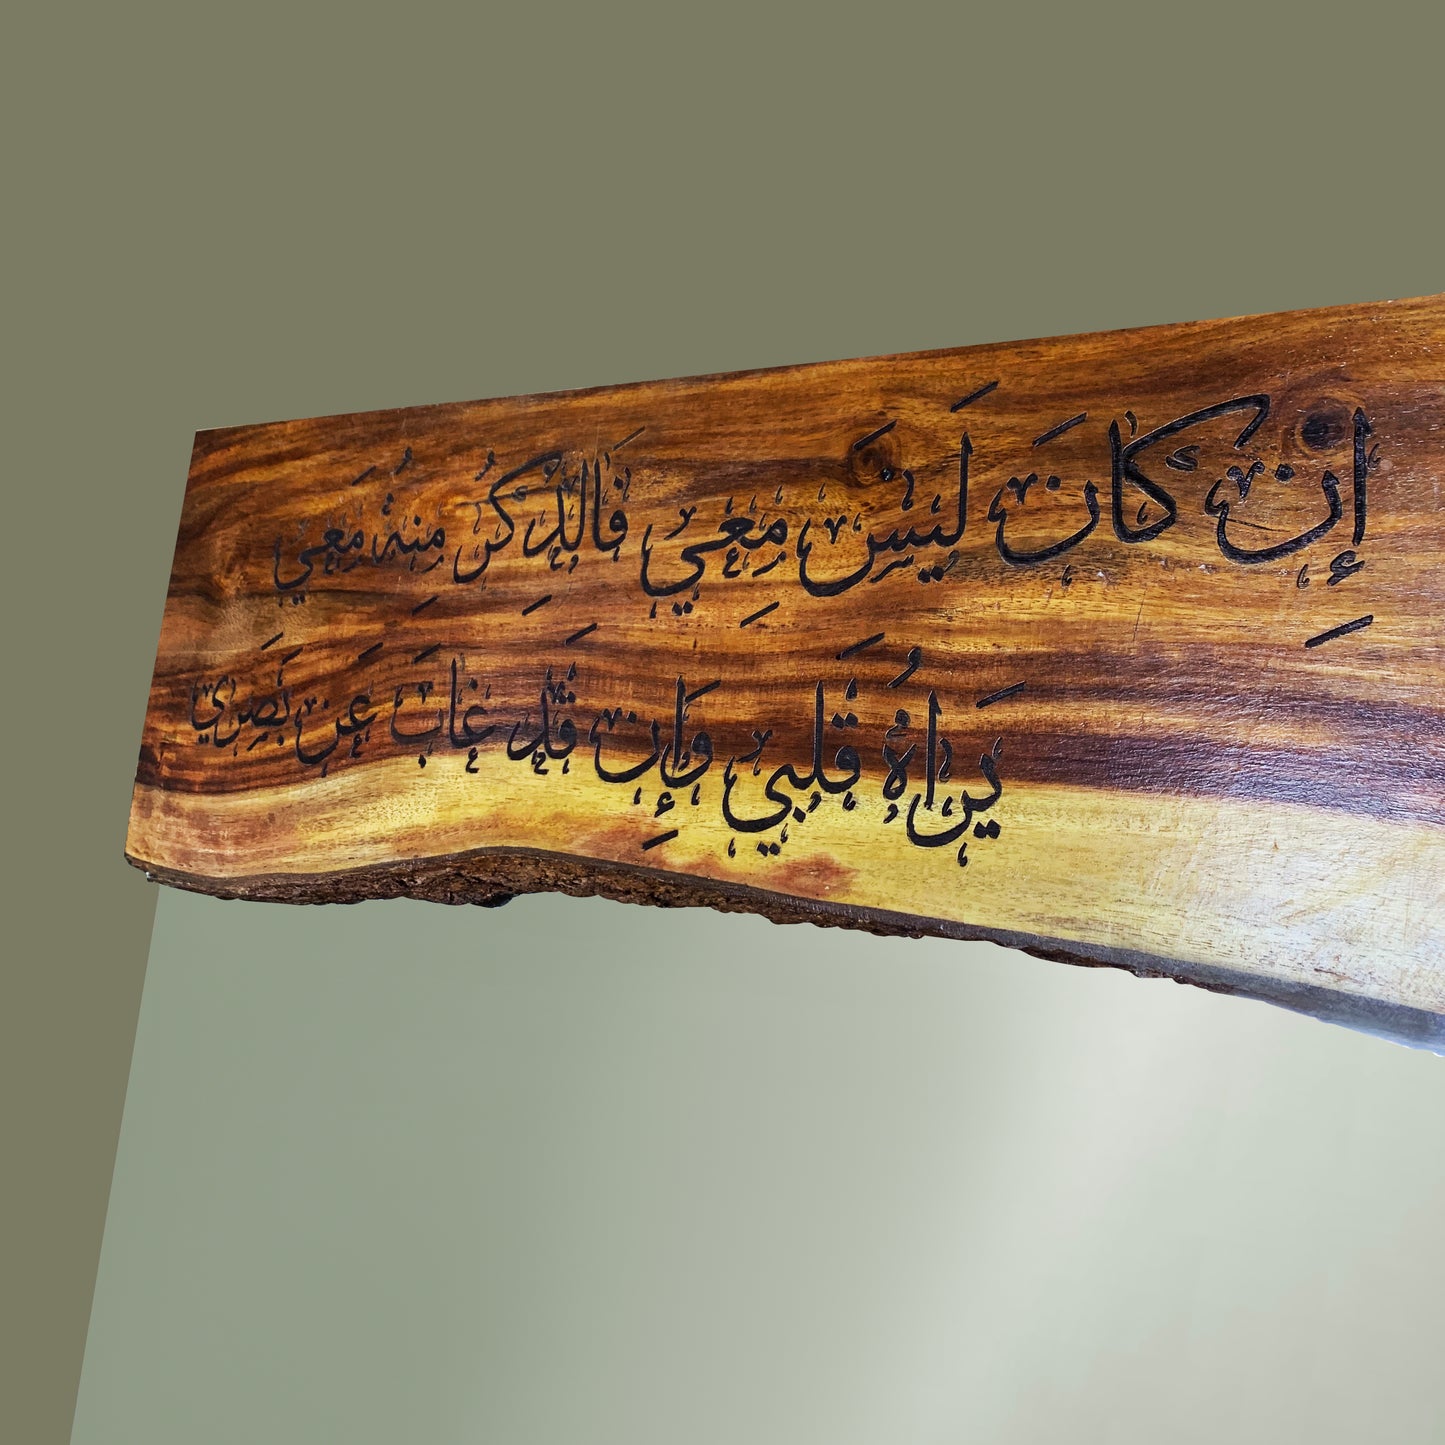 إِنْ كَانَ لَيْسَ مَعِي فَالذِّكْرُ مِنْهُ مَعِي
يَرَاهُ قَلْبِي وَإِنْ قَدْ غَابَ عَنْ بَصَرِي